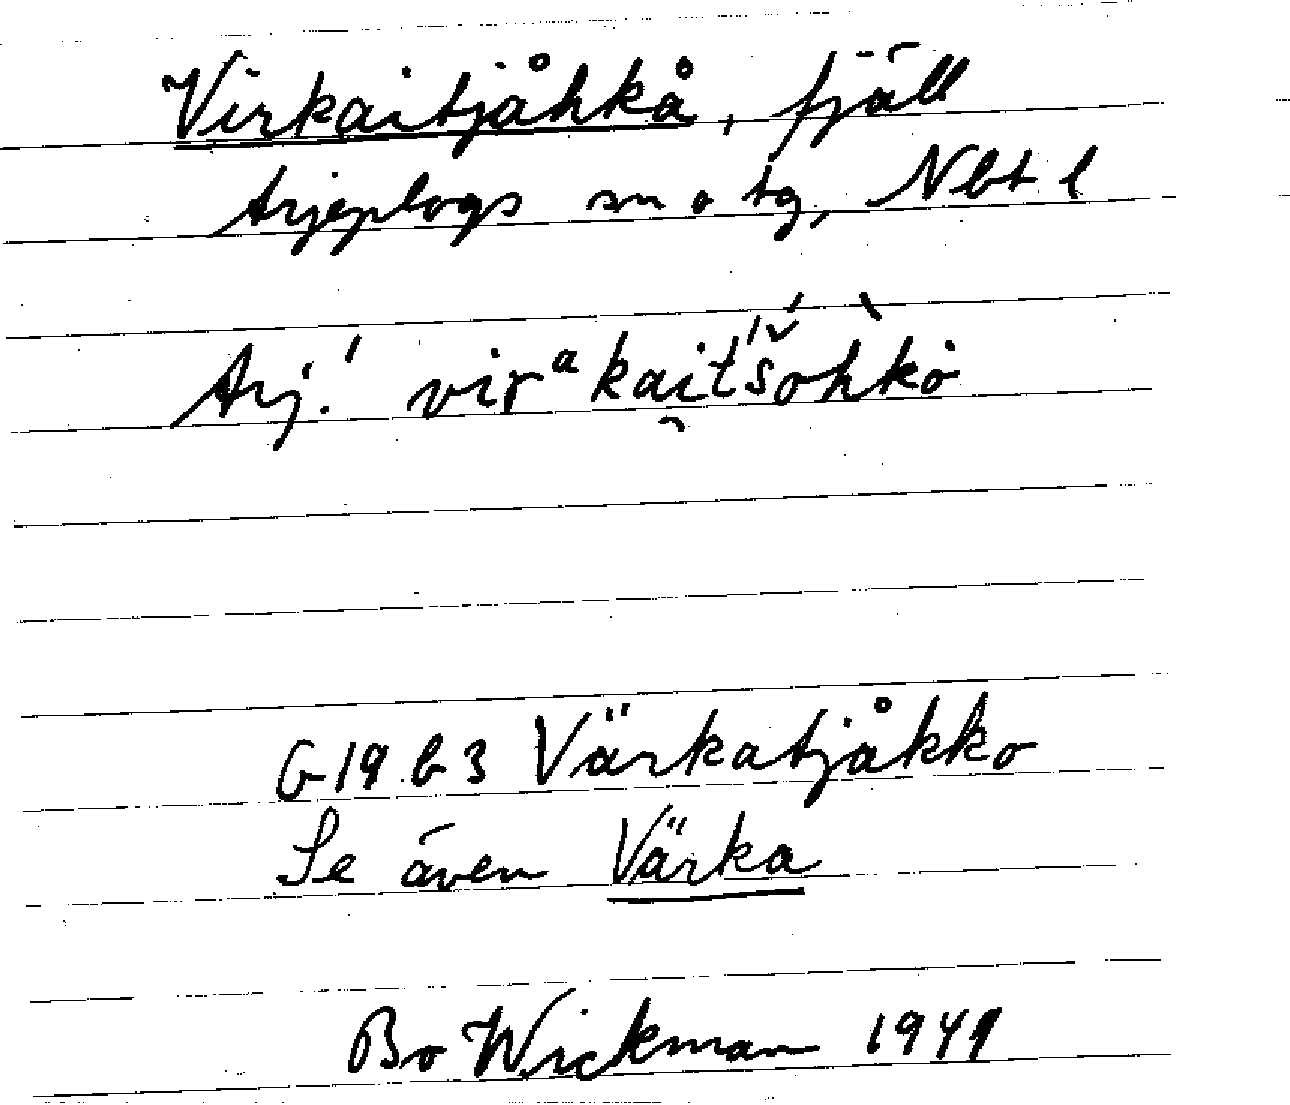 Virkaitjåhkå, fjäll
Arjeplogs sn o tg, Nbt l
Arj.
G 19 b 3 Värkatjåkko
Se även Värka
Bo Wickman